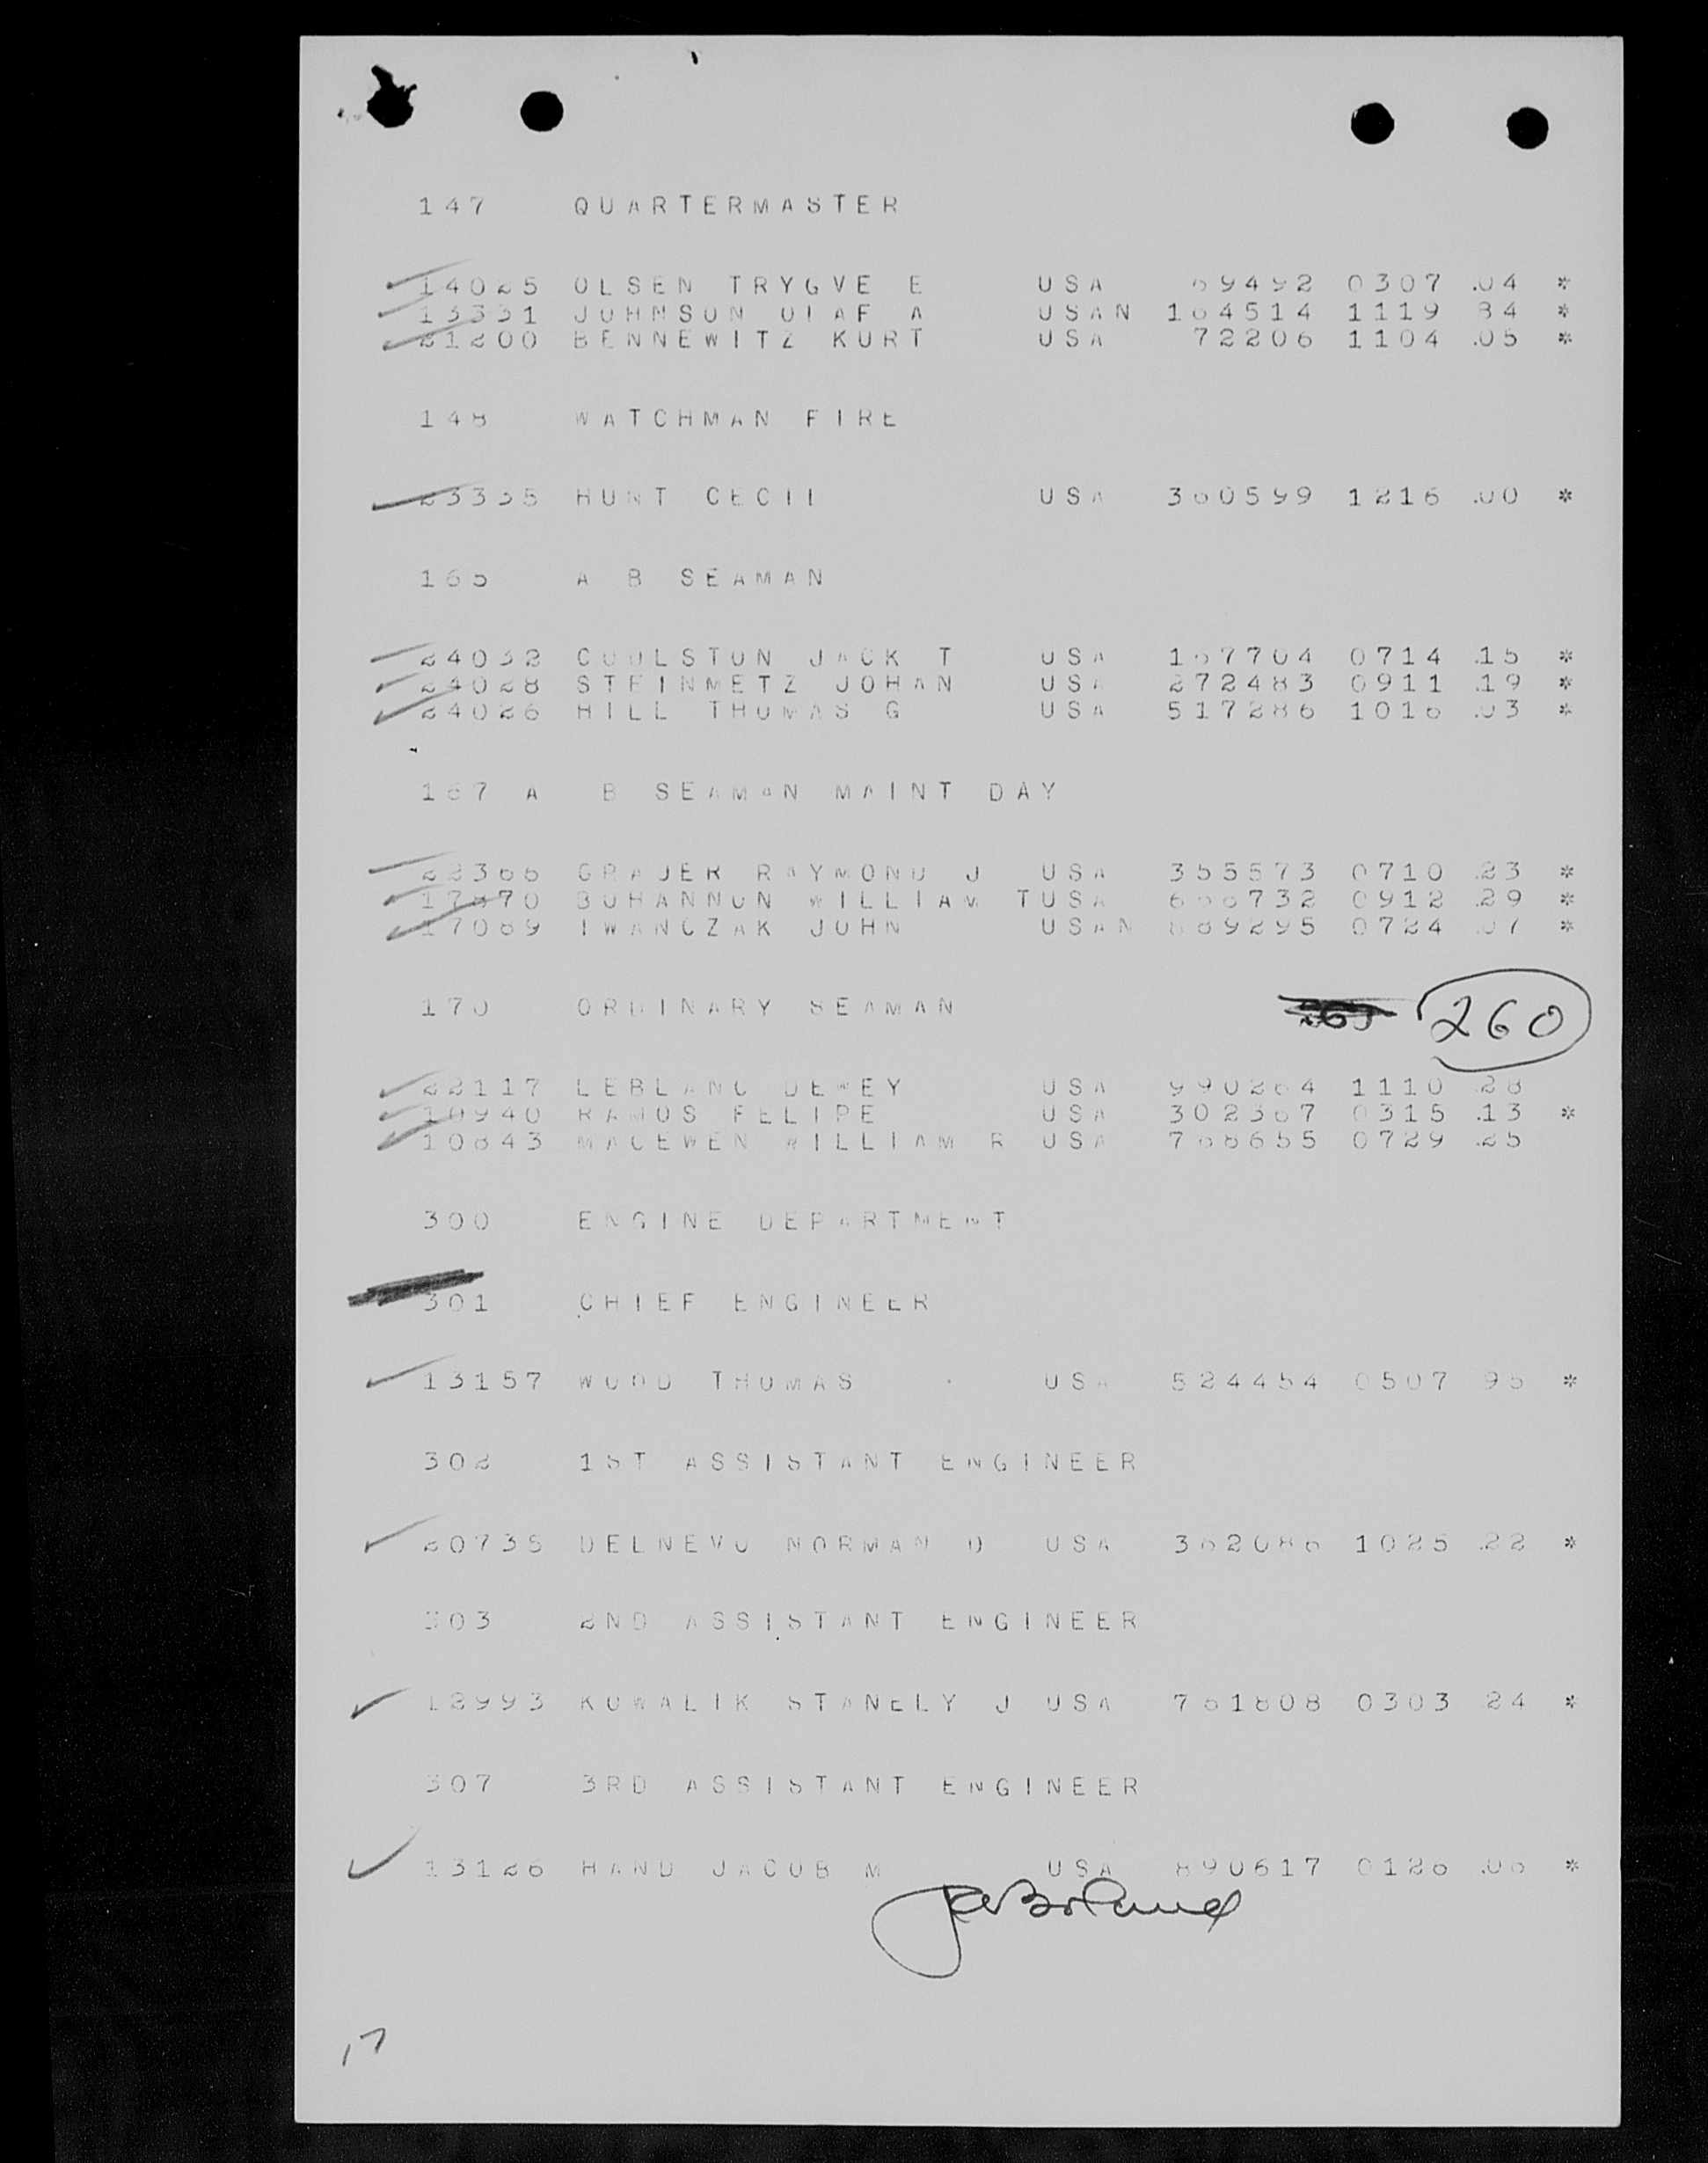 147 QUARTERMASTER
14025 OLSEN TRYGVE E USA 69492 0307 .04 *
13331 JOHNSON OLAF A USAN 164514 1119 84 *
21200 BENNEWITZ KURT USA 72206 1104 .05 *
148 WATCHMAN FIRE
23335 HUNT CECIL USA 360599 1216 .00 *
165 A B SEAMAN
24032 COULSTON JACK T USA 167704 0714 .15 *
24028 STEINMETZ JOHAN USA 272483 0911 .19 *
24026 HILL THOMAS G USA 517286 1016 .03 *
167 A B SEAMAN MAINT DAY
22366 GRAJER RAYMOND J USA 355573 0710 .23 *
17670 BOHANNON WILLIAM T USA 666732 0912 .29 *
17089 IWANCZAK JOHN USAN 889295 0724 .07 *
170 ORDINARY SEAMAN 260
22117 LEBLANC DEWEY USA 990264 1110 .28
10940 RAMOS FELIPE USA 302367 0315 .13 *
10843 MACEWEN WILLIAM R USA 768655 0729 .25
300 ENGINE DEPARTMENT
301 CHIEF ENGINEER
13157 WOOD THOMAS USA 524454 0507 95 *
302 1ST ASSISTANT ENGINEER
20735 DELNEVO NORMAN D USA 362086 1025 .22 *
303 2ND ASSISTANT ENGINEER
12993 KOWALIK STANELY J USA 761808 0303 24 *
307 3RD ASSISTANT ENGINEER
13126 HAND JACOB M USA 890617 0126 .06 *
17